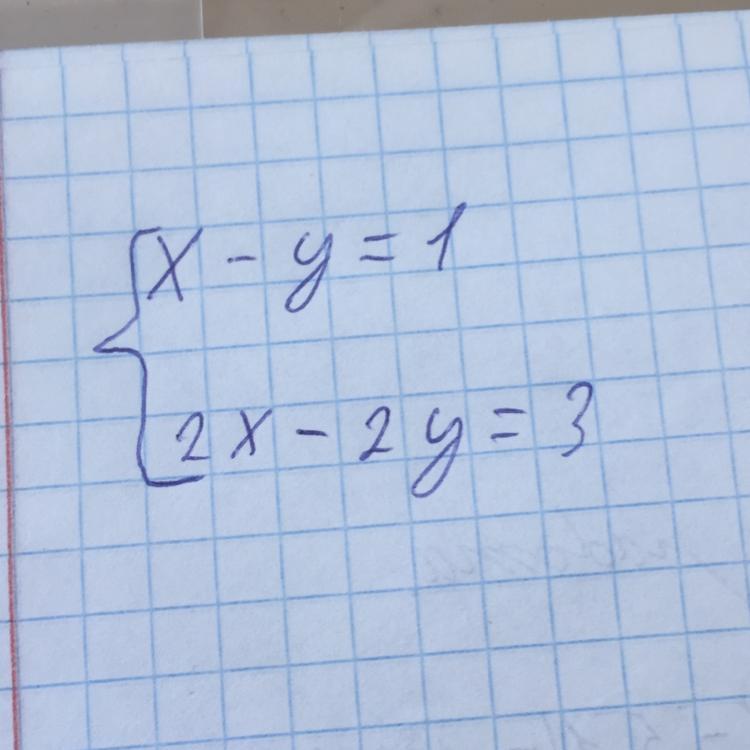 x - y = 1
2x - 2y = 3